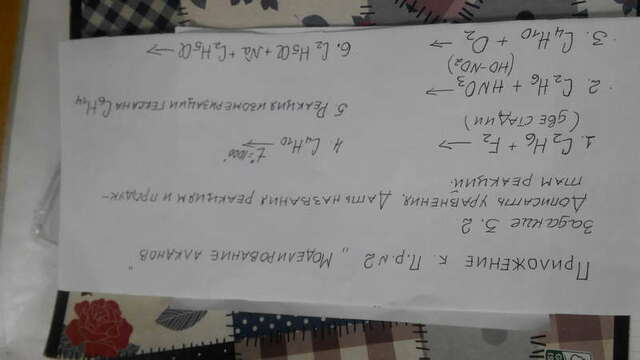 Приложение к П.р.№2 „Моделирование алканов"
Задание 3.2
Дописать уравнения. Дать названия реакциям и продук-
там реакций.
1. C2H6 + F2 →
(две стадии)
2. C2H6 + HNO3 →
(HO-NO2)
3. C4H10 + O2 →
4. C4H10 t°=1000° →
5 Реакция изомеризации гексана C6H14
6. C2H5Cl + Na + C2H5Cl →